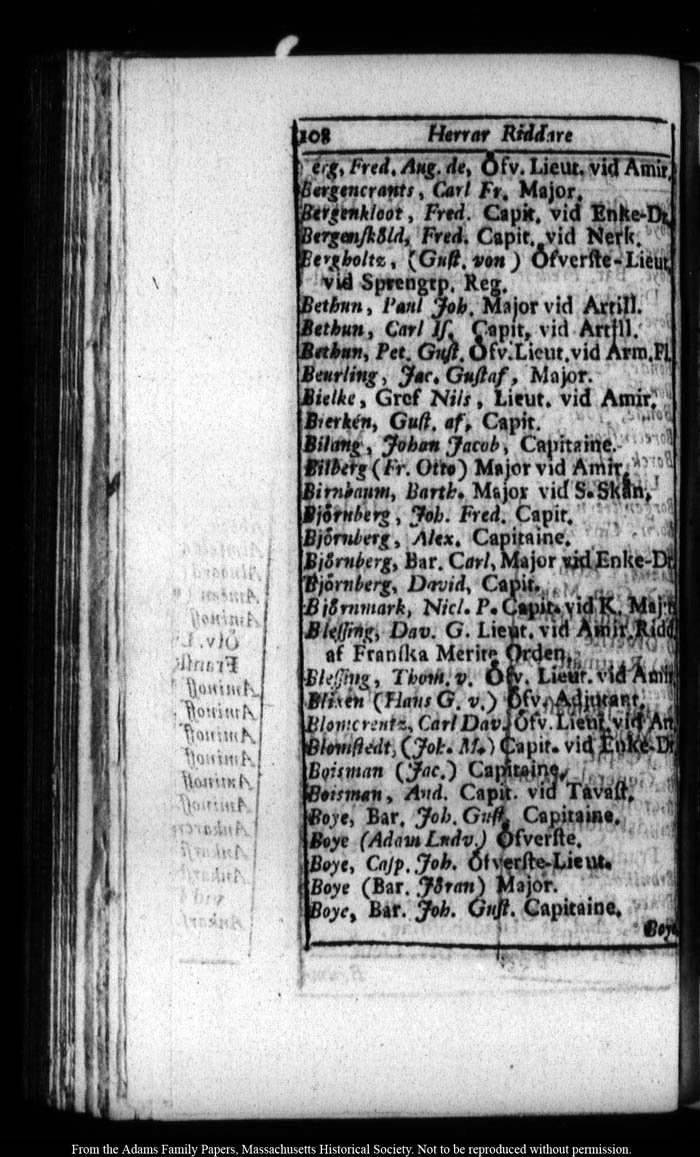 108 Herrar Riddare
erg, Fred. Aug. de, Öfv. Lieut. vid Amir.
Bergencrants, Carl Fr. Major.
Bergenkloot, Fred. Capit. vid Enke-Dr.
Bergenſköld, Fred. Capit. vid Nerk.
Bergholtz, (Guſt. von) Öfverſte-Lieut.
vid Sprengtp. Reg.
Bethun, Paul Joh. Major vid Artill.
Bethun, Carl Iſ. Capit. vid Artill.
Bethun, Pet. Guſt. Öfv. Lieut. vid Arm. Fl.
Beurling, Jac. Guſtaf, Major.
Bielke, Gref Nils, Lieut. vid Amir.
Bierkén, Guſt. af, Capit.
Bilang, Johan Jacob, Capitaine.
Bilberg (Fr. Otto) Major vid Amir.
Birnbaum, Barth. Major vid S. Skån.
Björnberg, Joh. Fred. Capit.
Björnberg, Alex. Capitaine.
Björnberg, Bar. Carl, Major vid Enke-Dr
Björnberg, David, Capit.
Björnmark, Nicl. P. Capit. vid K. Maj:ts
Bleſſing, Dav. G. Lieut. vid Amir. Ridd.
af Franſka Merite Orden.
Bleſſing, Thom. v. Öfv. Lieut. vid Amir.
Blixen (Hans G. v.) Öfv. Adjutant.
Blomcrentz, Carl Dav. Öfv. Lieut. vid Art.
Blomſtedt, (Joh. M.) Capit. vid Enke-Dr
Boisman (Jac.) Capitaine.
Boisman, And. Capit. vid Tavaſt.
Boye, Bar. Joh. Guſt. Capitaine.
Boye (Adam Ludv.) Öfverſte.
Boye, Caſp. Joh. Öfverſte-Lieut.
Boye (Bar. Jöran) Major.
Boye, Bar. Joh. Guſt. Capitaine.
Boye
From the Adams Family Papers, Massachusetts Historical Society. Not to be reproduced without permission.